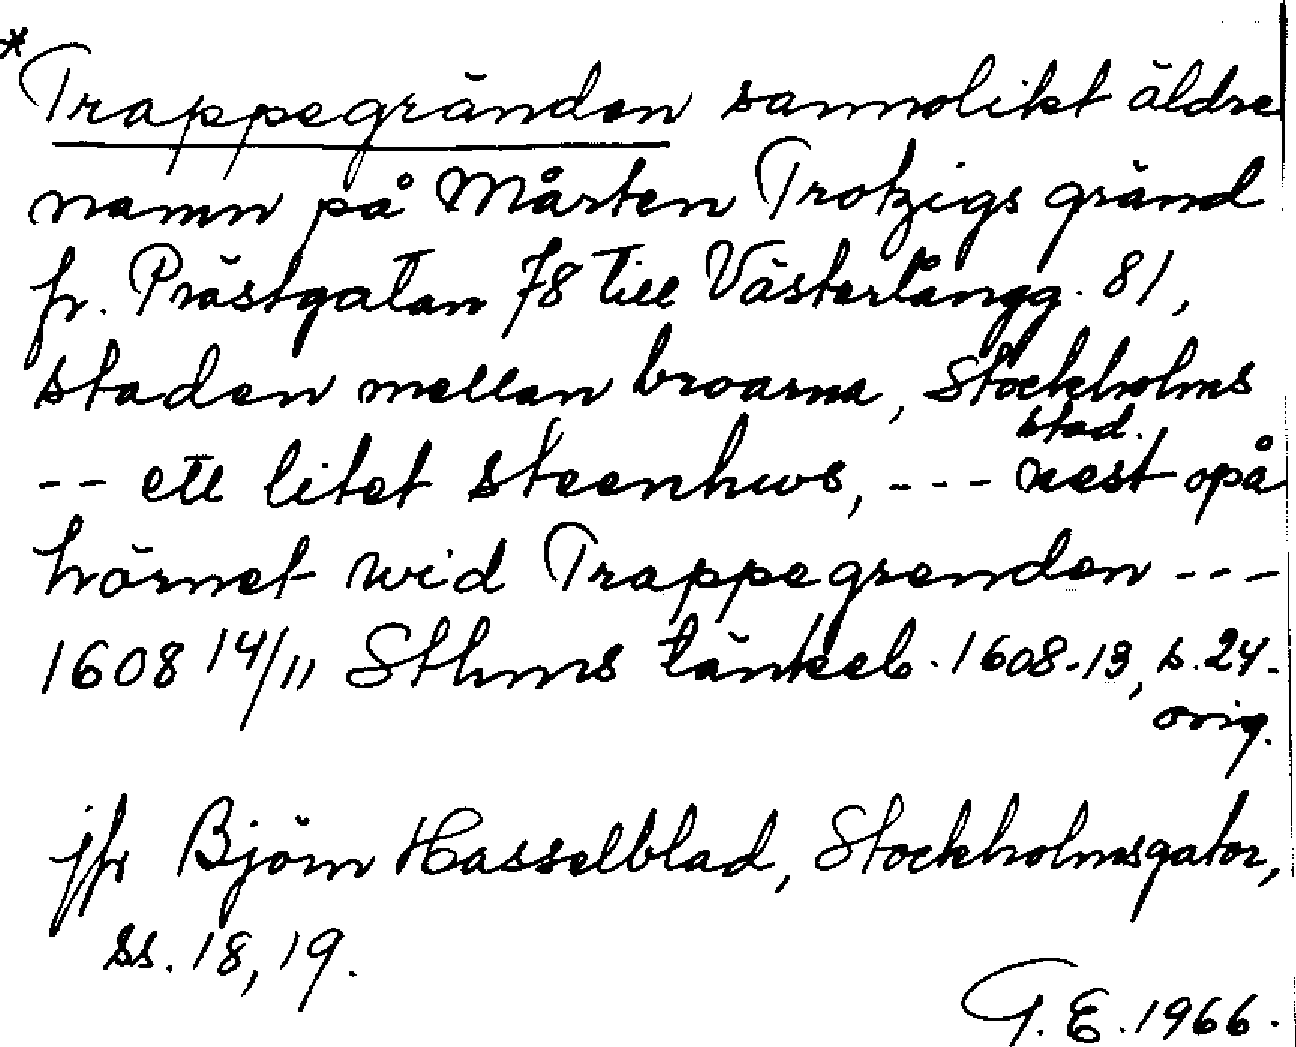 * Trappegränden sannolikt äldre
namn på Mårten Trotzigs gränd
fr. Prästgatan 78 till Västerlångg. 81,
staden mellan broarna, Stockholms
stad.
-- ett litet steenhws, --- nest opå
hörnet wid Trappegrenden ---
1608 14/11 Sthms tänkeb. 1608-13, s. 24.
orig.
jfr Björn Hasselblad, Stockholmsgator,
ss. 18, 19.
G. E. 1966.